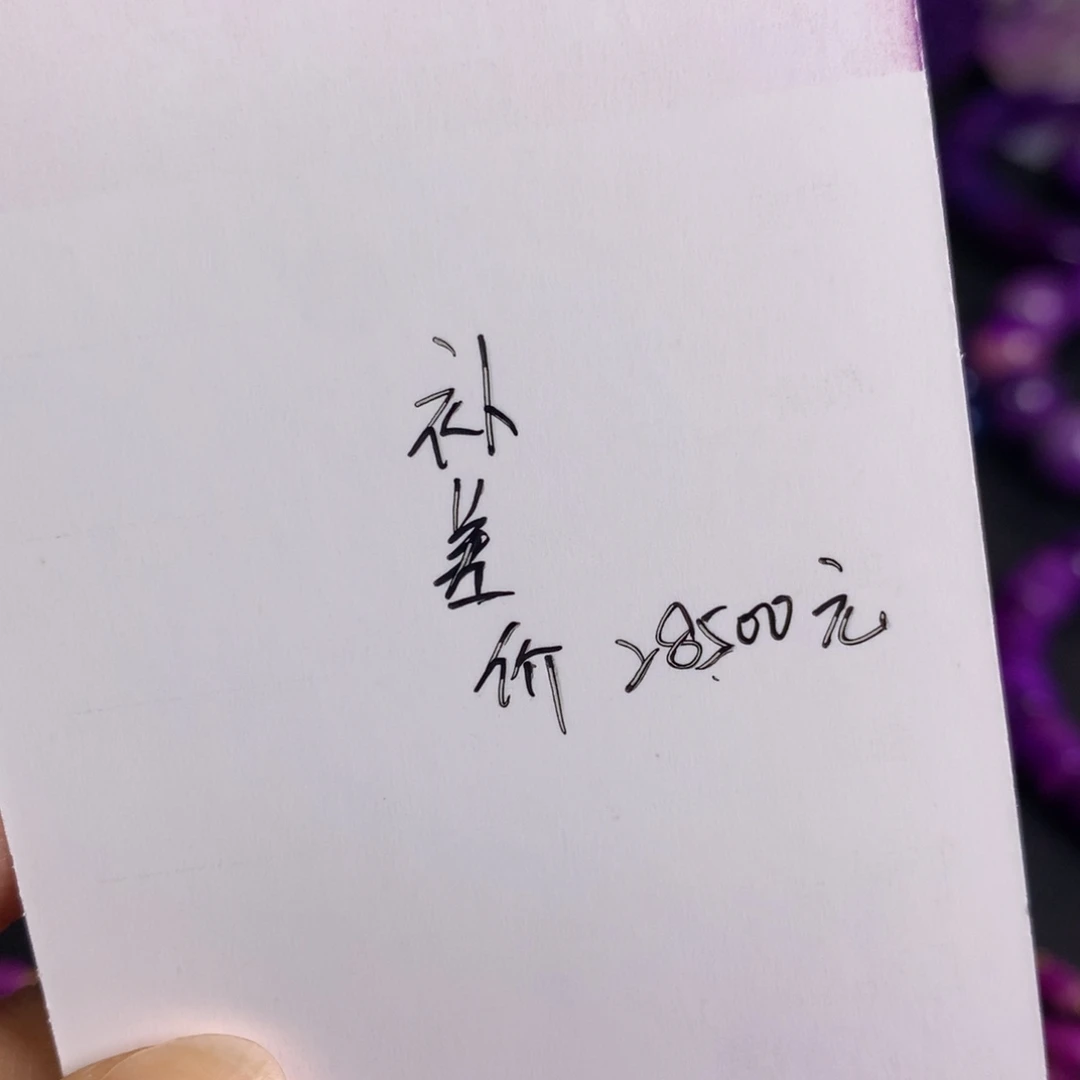 补差价28500元